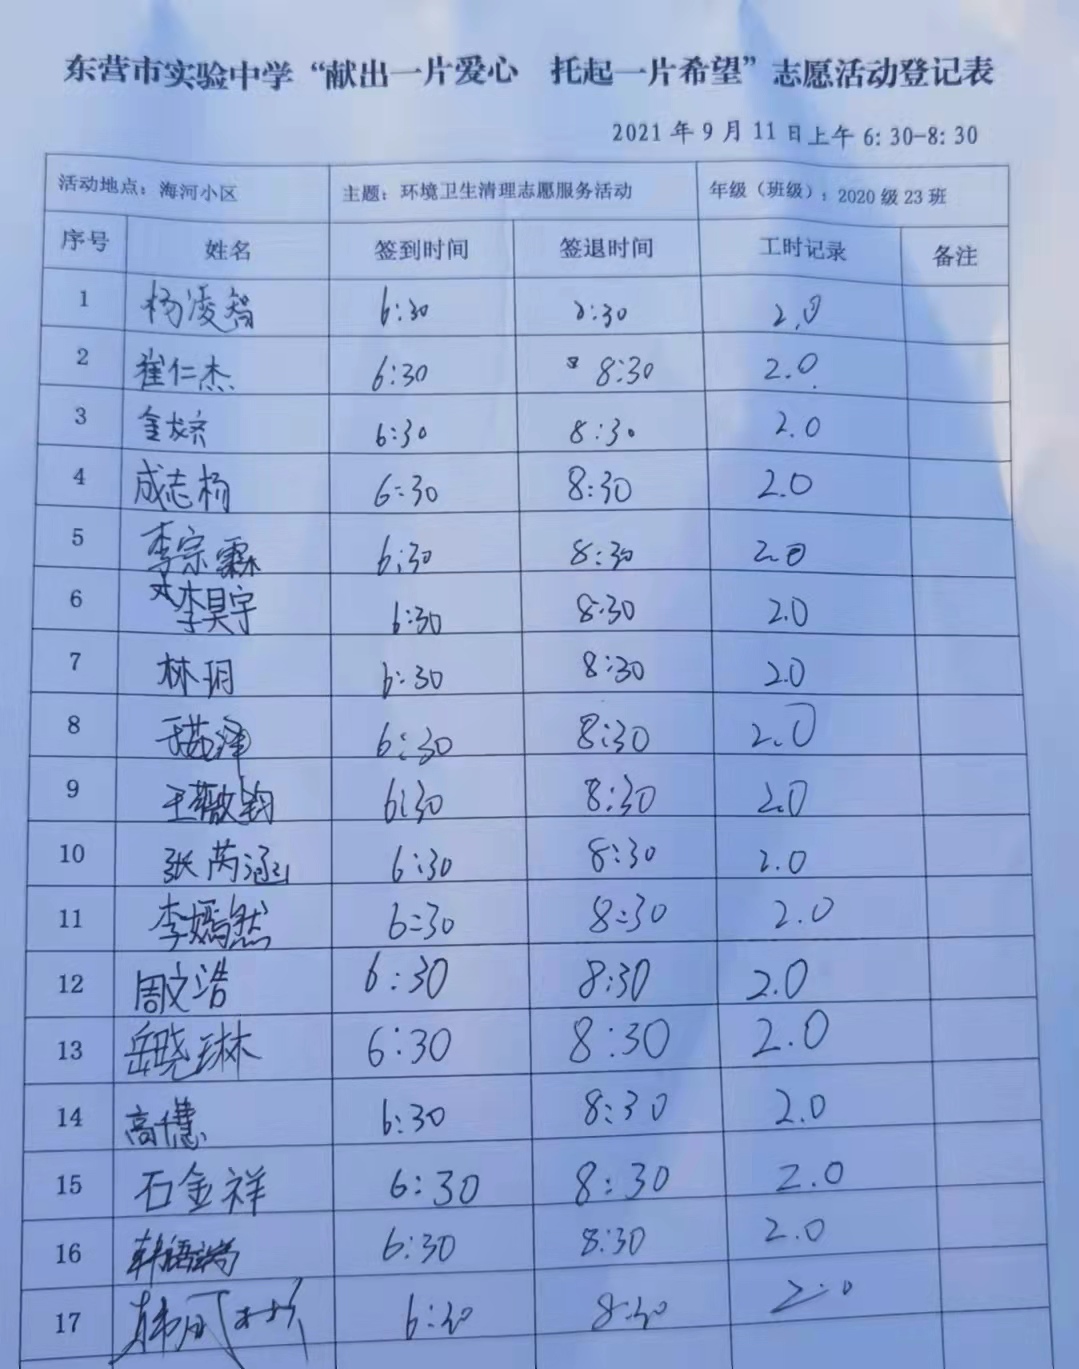 东营市实验中学“献出一片爱心　托起一片希望”志愿活动登记表
2021年9月11日上午6:30-8:30
活动地点：海河小区 主题：环境卫生清理志愿服务活动 年级（班级）：2020级23班
序号 姓名 签到时间 签退时间 工时记录 备注
1 杨凌智 6:30 8:30 2.0
2 崔仁杰 6:30 8:30 2.0
3 金 6:30 8:30 2.0
4 成志杨 6:30 8:30 2.0
5 李宗霖 6:30 8:30 2.0
6 李昊宇 6:30 8:30 2.0
7 林玥 6:30 8:30 2.0
8 6:30 8:30 2.0
9 王薇钧 6:30 8:30 2.0
10 张芮涵 6:30 8:30 2.0
11 李嫣然 6:30 8:30 2.0
12 周文浩 6:30 8:30 2.0
13 岳晓琳 6:30 8:30 2.0
14 高千慧 6:30 8:30 2.0
15 石金祥 6:30 8:30 2.0
16 6:30 8:30 2.0
17 6:30 8:30 2.0